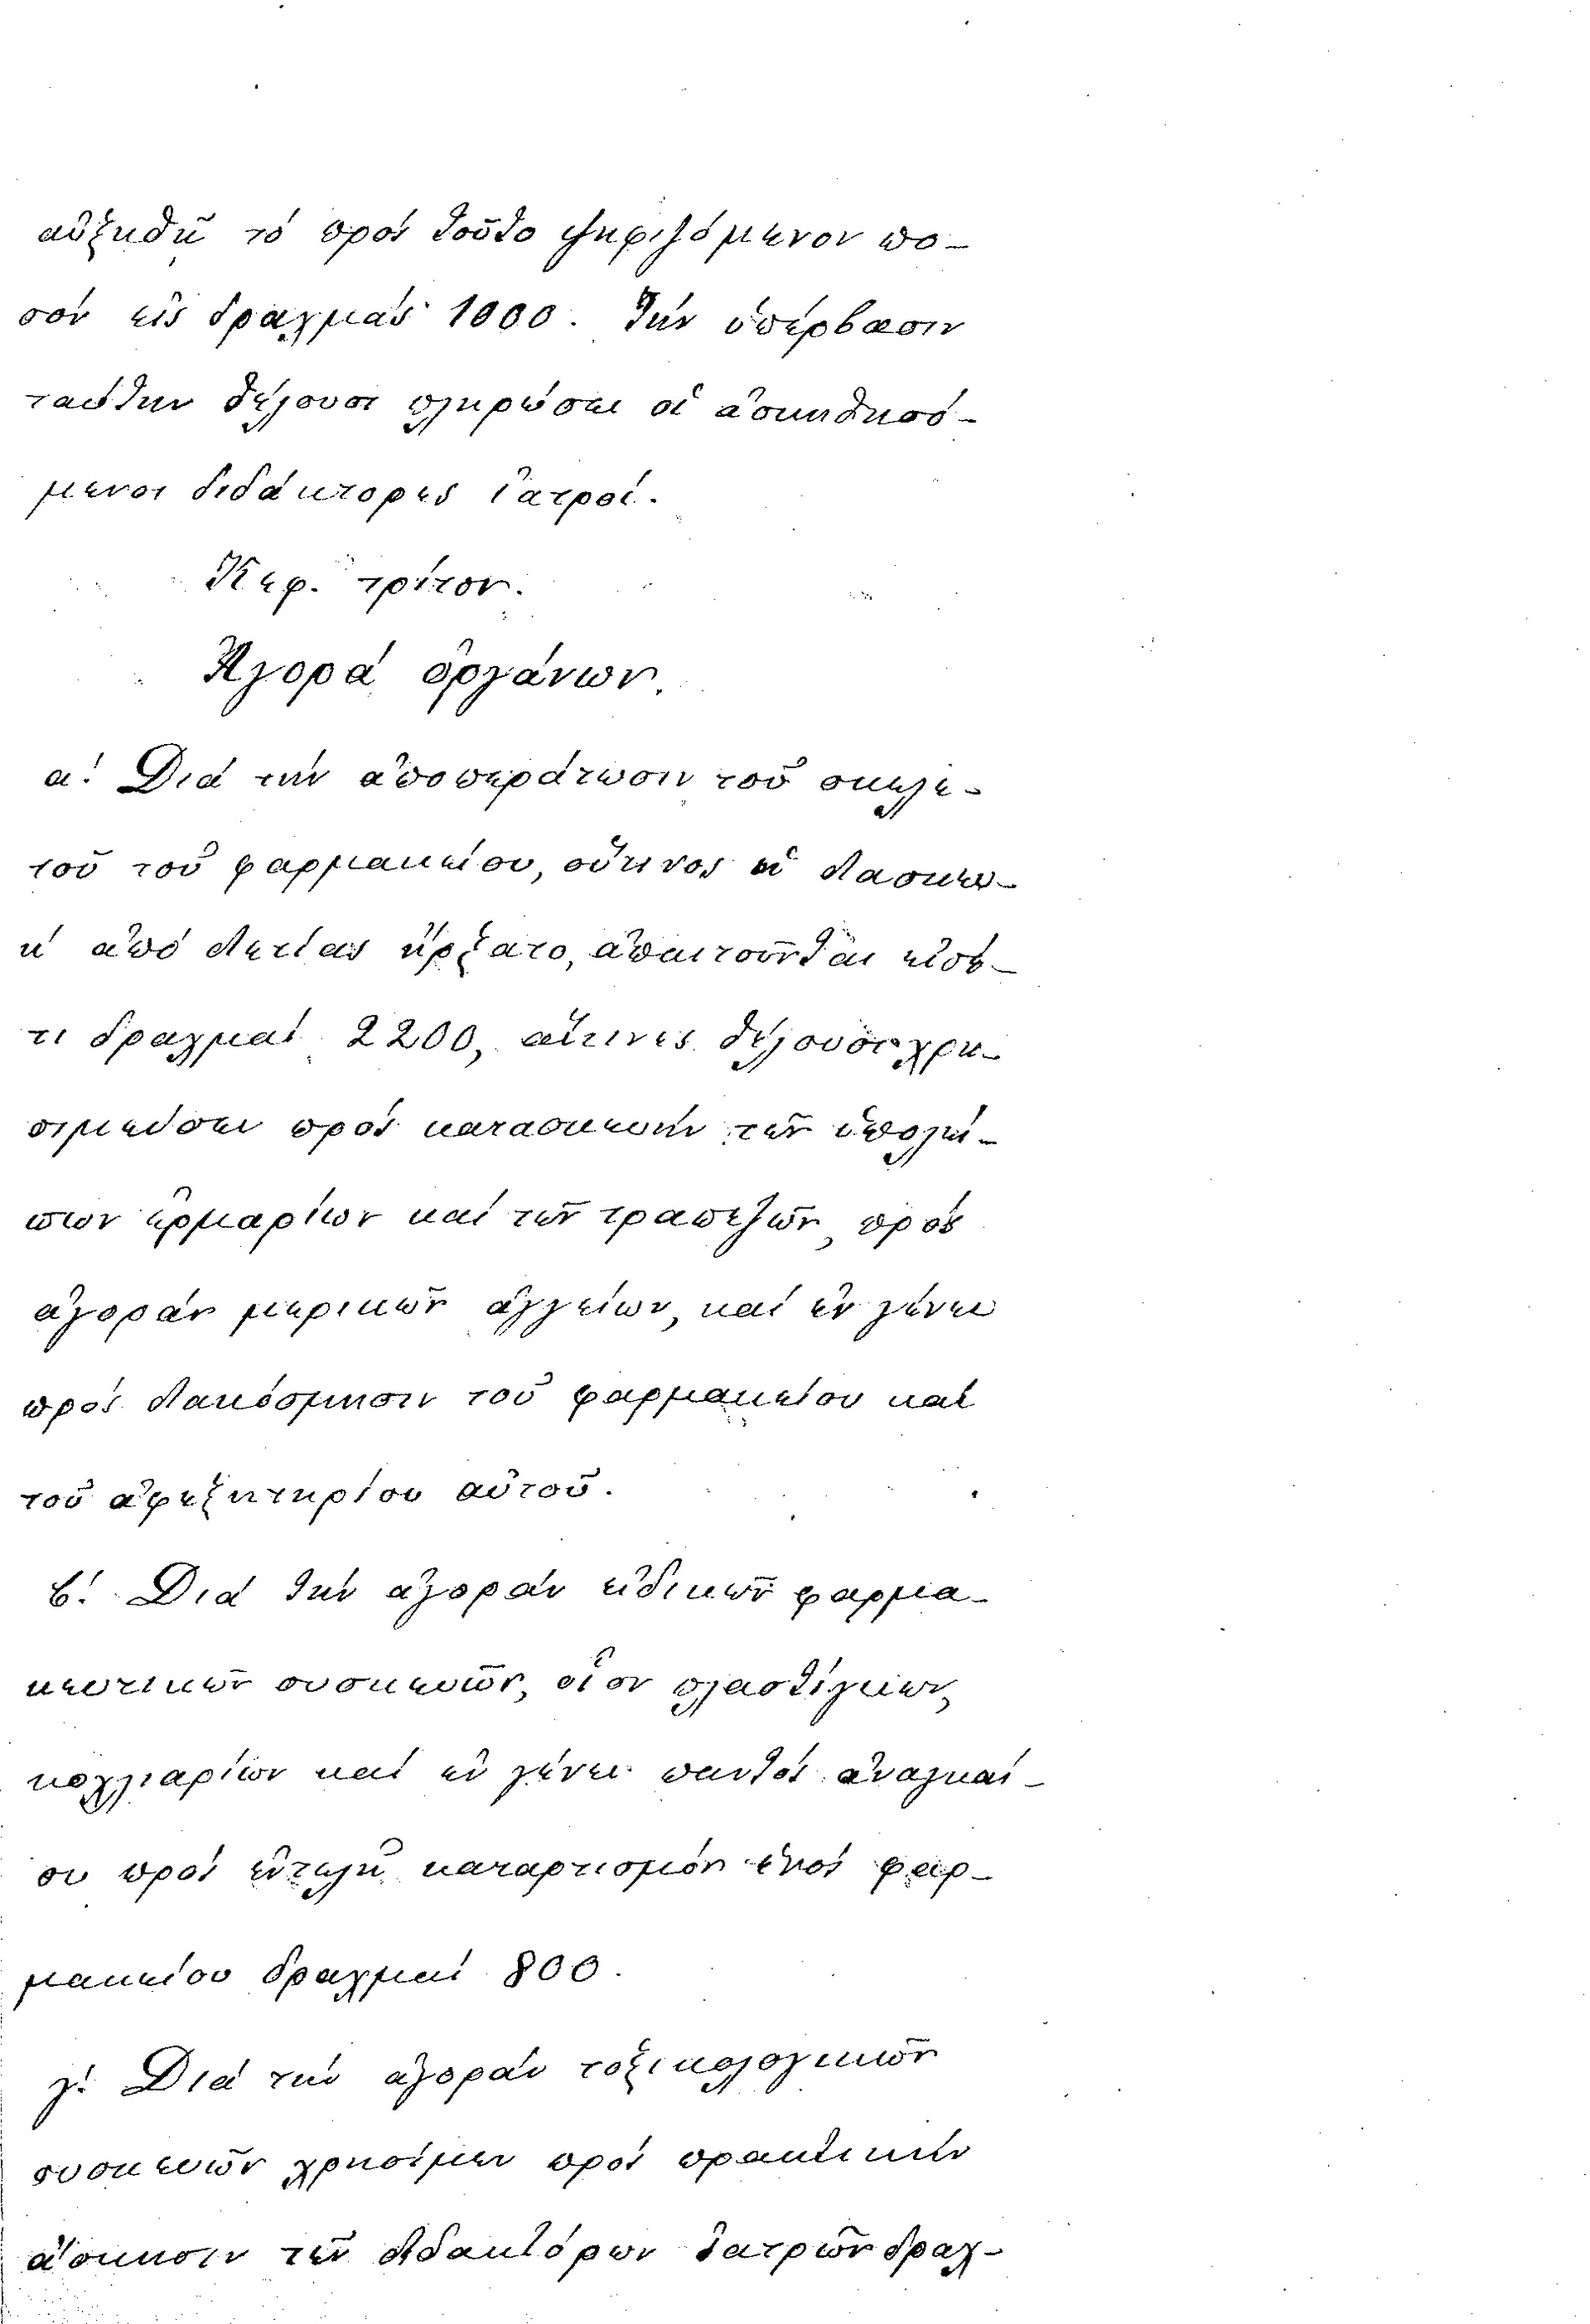 αὐξηθῇ τό πρός τοῦτο ψηφιζόμενον πο-
σόν εἰς δραχμάς 1000. Τήν ὑπέρβασιν
ταύτην θέλουσι πληρώσει οἱ ἀσκηθησό-
μενοι διδάκτορες ἰατροί.
Κεφ. τρίτον.
Ἀγορά ὀργάνων.
α'. Διά τήν ἀποπεράτωσιν τοῦ σκελε-
τοῦ τοῦ φαρμακείου, οὗτινος ἡ διασκευ-
ή ἀπό διετίας ἤρξατο, ἀπαιτοῦνται εἰσέ-
τι δραχμαί 2200, αἵτινες θέλουσι χρη-
σιμεύσει πρός κατασκευήν τῶν ὑπολοί-
πων ἑρμαρίων καί τῶν τραπεζῶν, πρός
ἀγοράν μερικῶν ἀγγείων, καί ἐν γένει
πρός διακόσμησιν τοῦ φαρμακείου καί
τοῦ ἀφεψητηρίου αὐτοῦ.
β'. Διά τήν ἀγοράν εἰδικῶν φαρμα-
κευτικῶν συσκευῶν, οἷον πλαστίγγων,
κοχλιαρίων καί ἐν γένει παντός ἀναγκαί-
ου πρός ἐντελῆ καταρτισμόν ἑνός φαρ-
μακείου δραχμαί 800.
γ'. Διά τήν ἀγοράν τοξικολογικῶν
συσκευῶν χρησίμων πρός πρακτικήν
ἄσκησιν τῶν διδακτόρων ἰατρῶν δραχ-